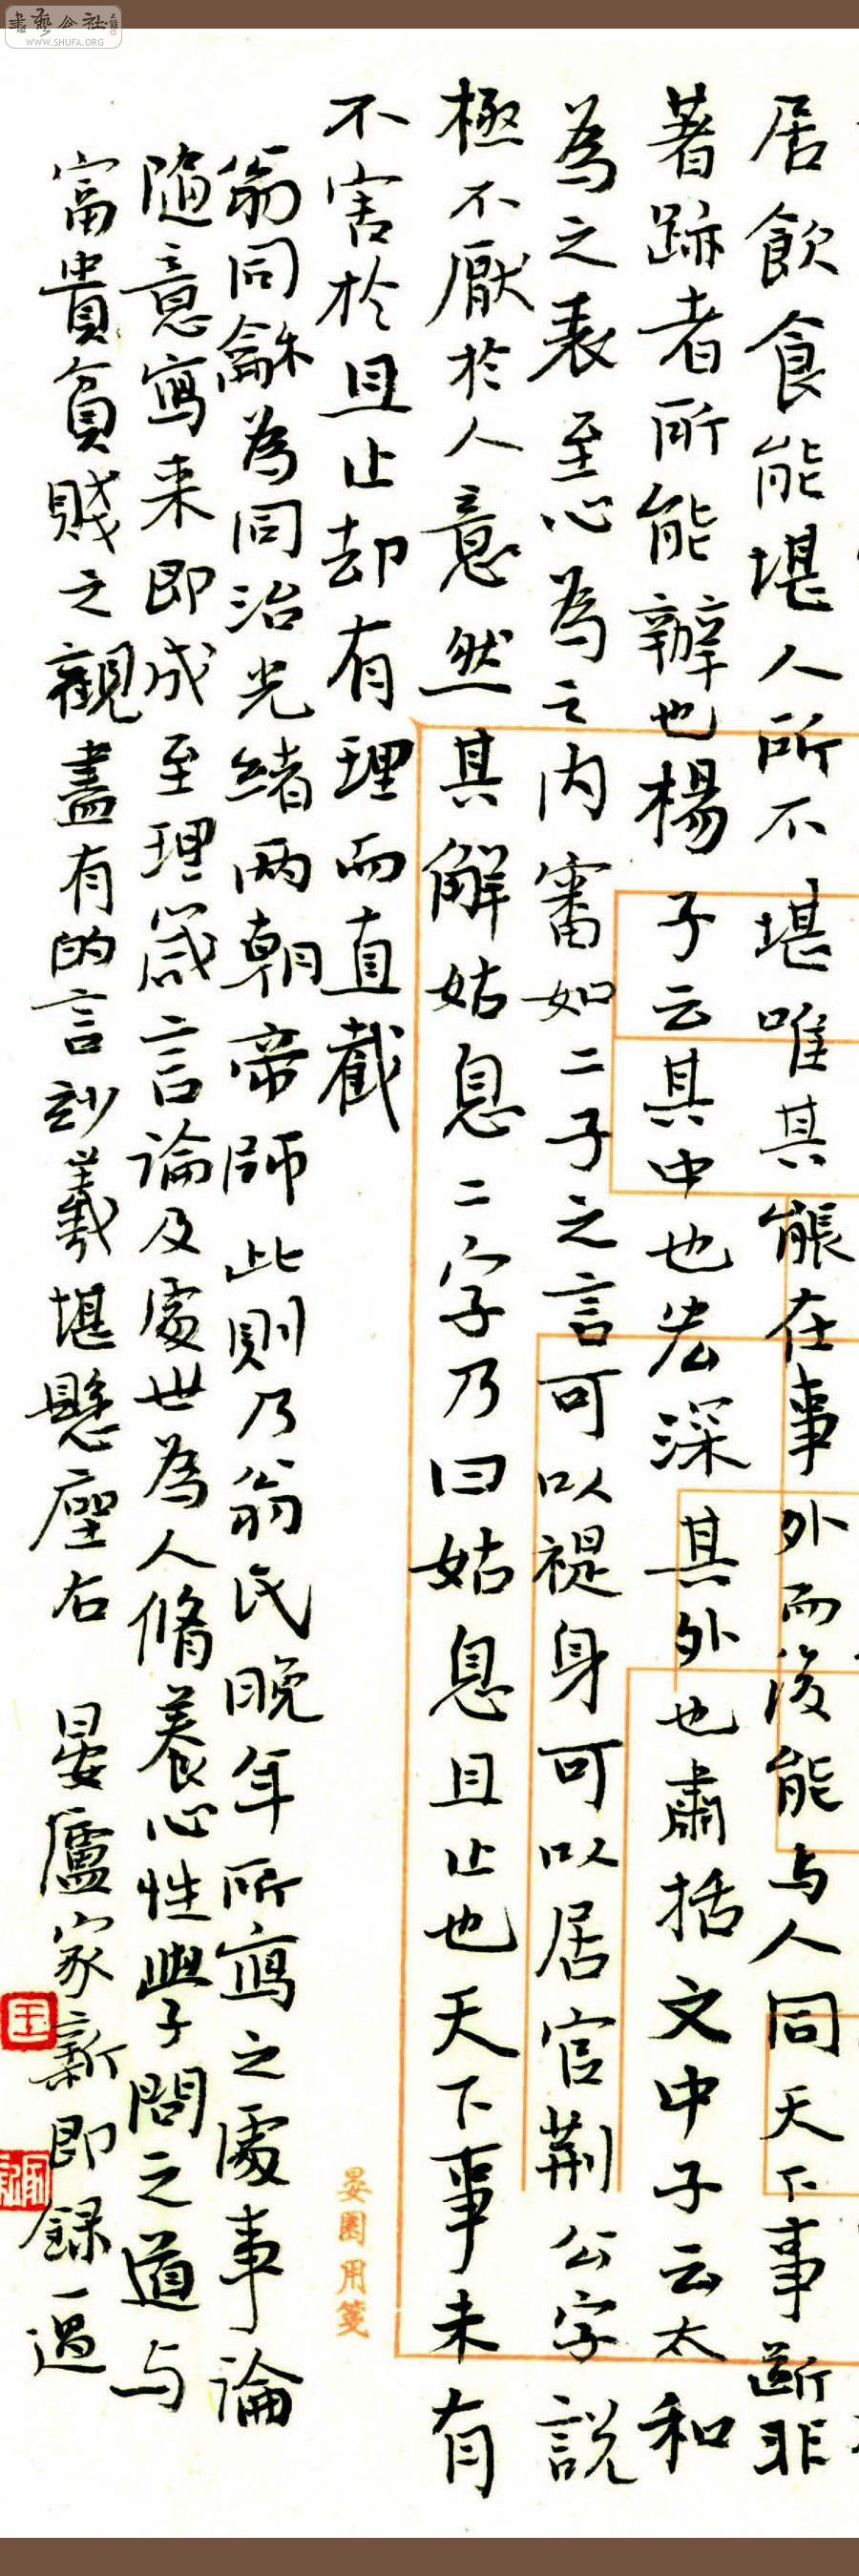 居飲食能堪人所不堪唯其能長在事外而後能与人同天下事斷非
著跡者所能辦也楊子云其中也宏深其外也肅括文中子云太和
為之表至心為之内審如二子之言可以禔身可以居官荆公字説
極不厭於人意然其解姑息二字乃曰姑息且止也天下事未有
不害於且止却有理而直截
翁同龢為同治光緒两朝帝師此則乃翁氏晚年所寫之處事論
隨意寫来即成至理箴言論及處世為人脩養心性學問之道与
富貴貧賤之觀盡有的言妙義堪懸座右 晏廬家新即録一過
晏園用箋
書藝公社
WWW.SHUFA.ORG